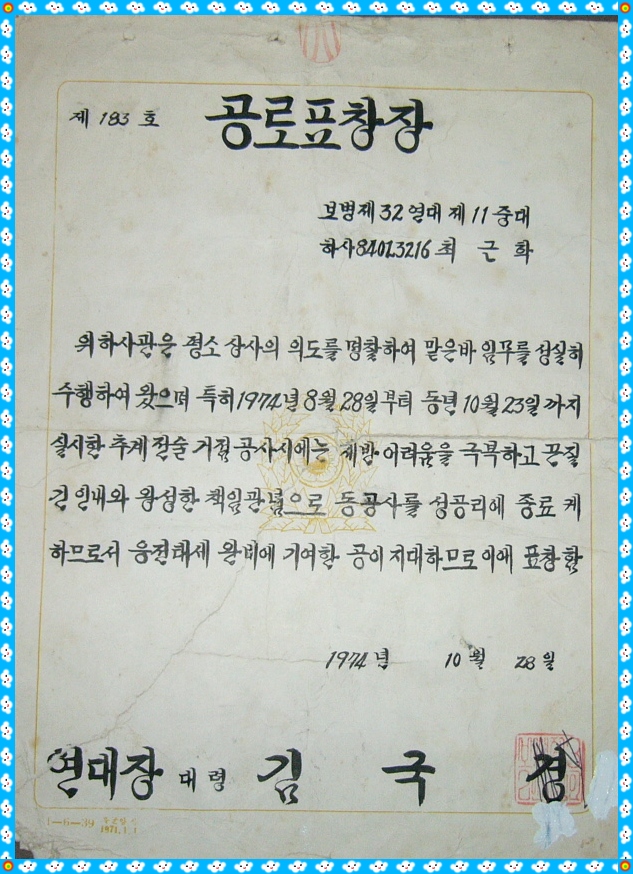 제 183 호
공로표창장
보병제 32 연대 제 11 중대
하사 84013216 최 근 화
위하사관은 평소 상사의 의도를 명찰하여 맡은바 임무를 성실히
수행하여 왔으며 특히 1974년 8월 28일부터 동년 10월 23일까지
실시한 추계전술 거점 공사시에는 제반 어려움을 극복하고 끈질
긴 인내와 왕성한 책임관념으로 동공사를 성공리에 종료 케
하므로서 응전태세 완비에 기여한 공이 지대하므로 이에 표창함
1974년 10월 28일
연대장 대령 김 국
1-6-39
1971.1.1